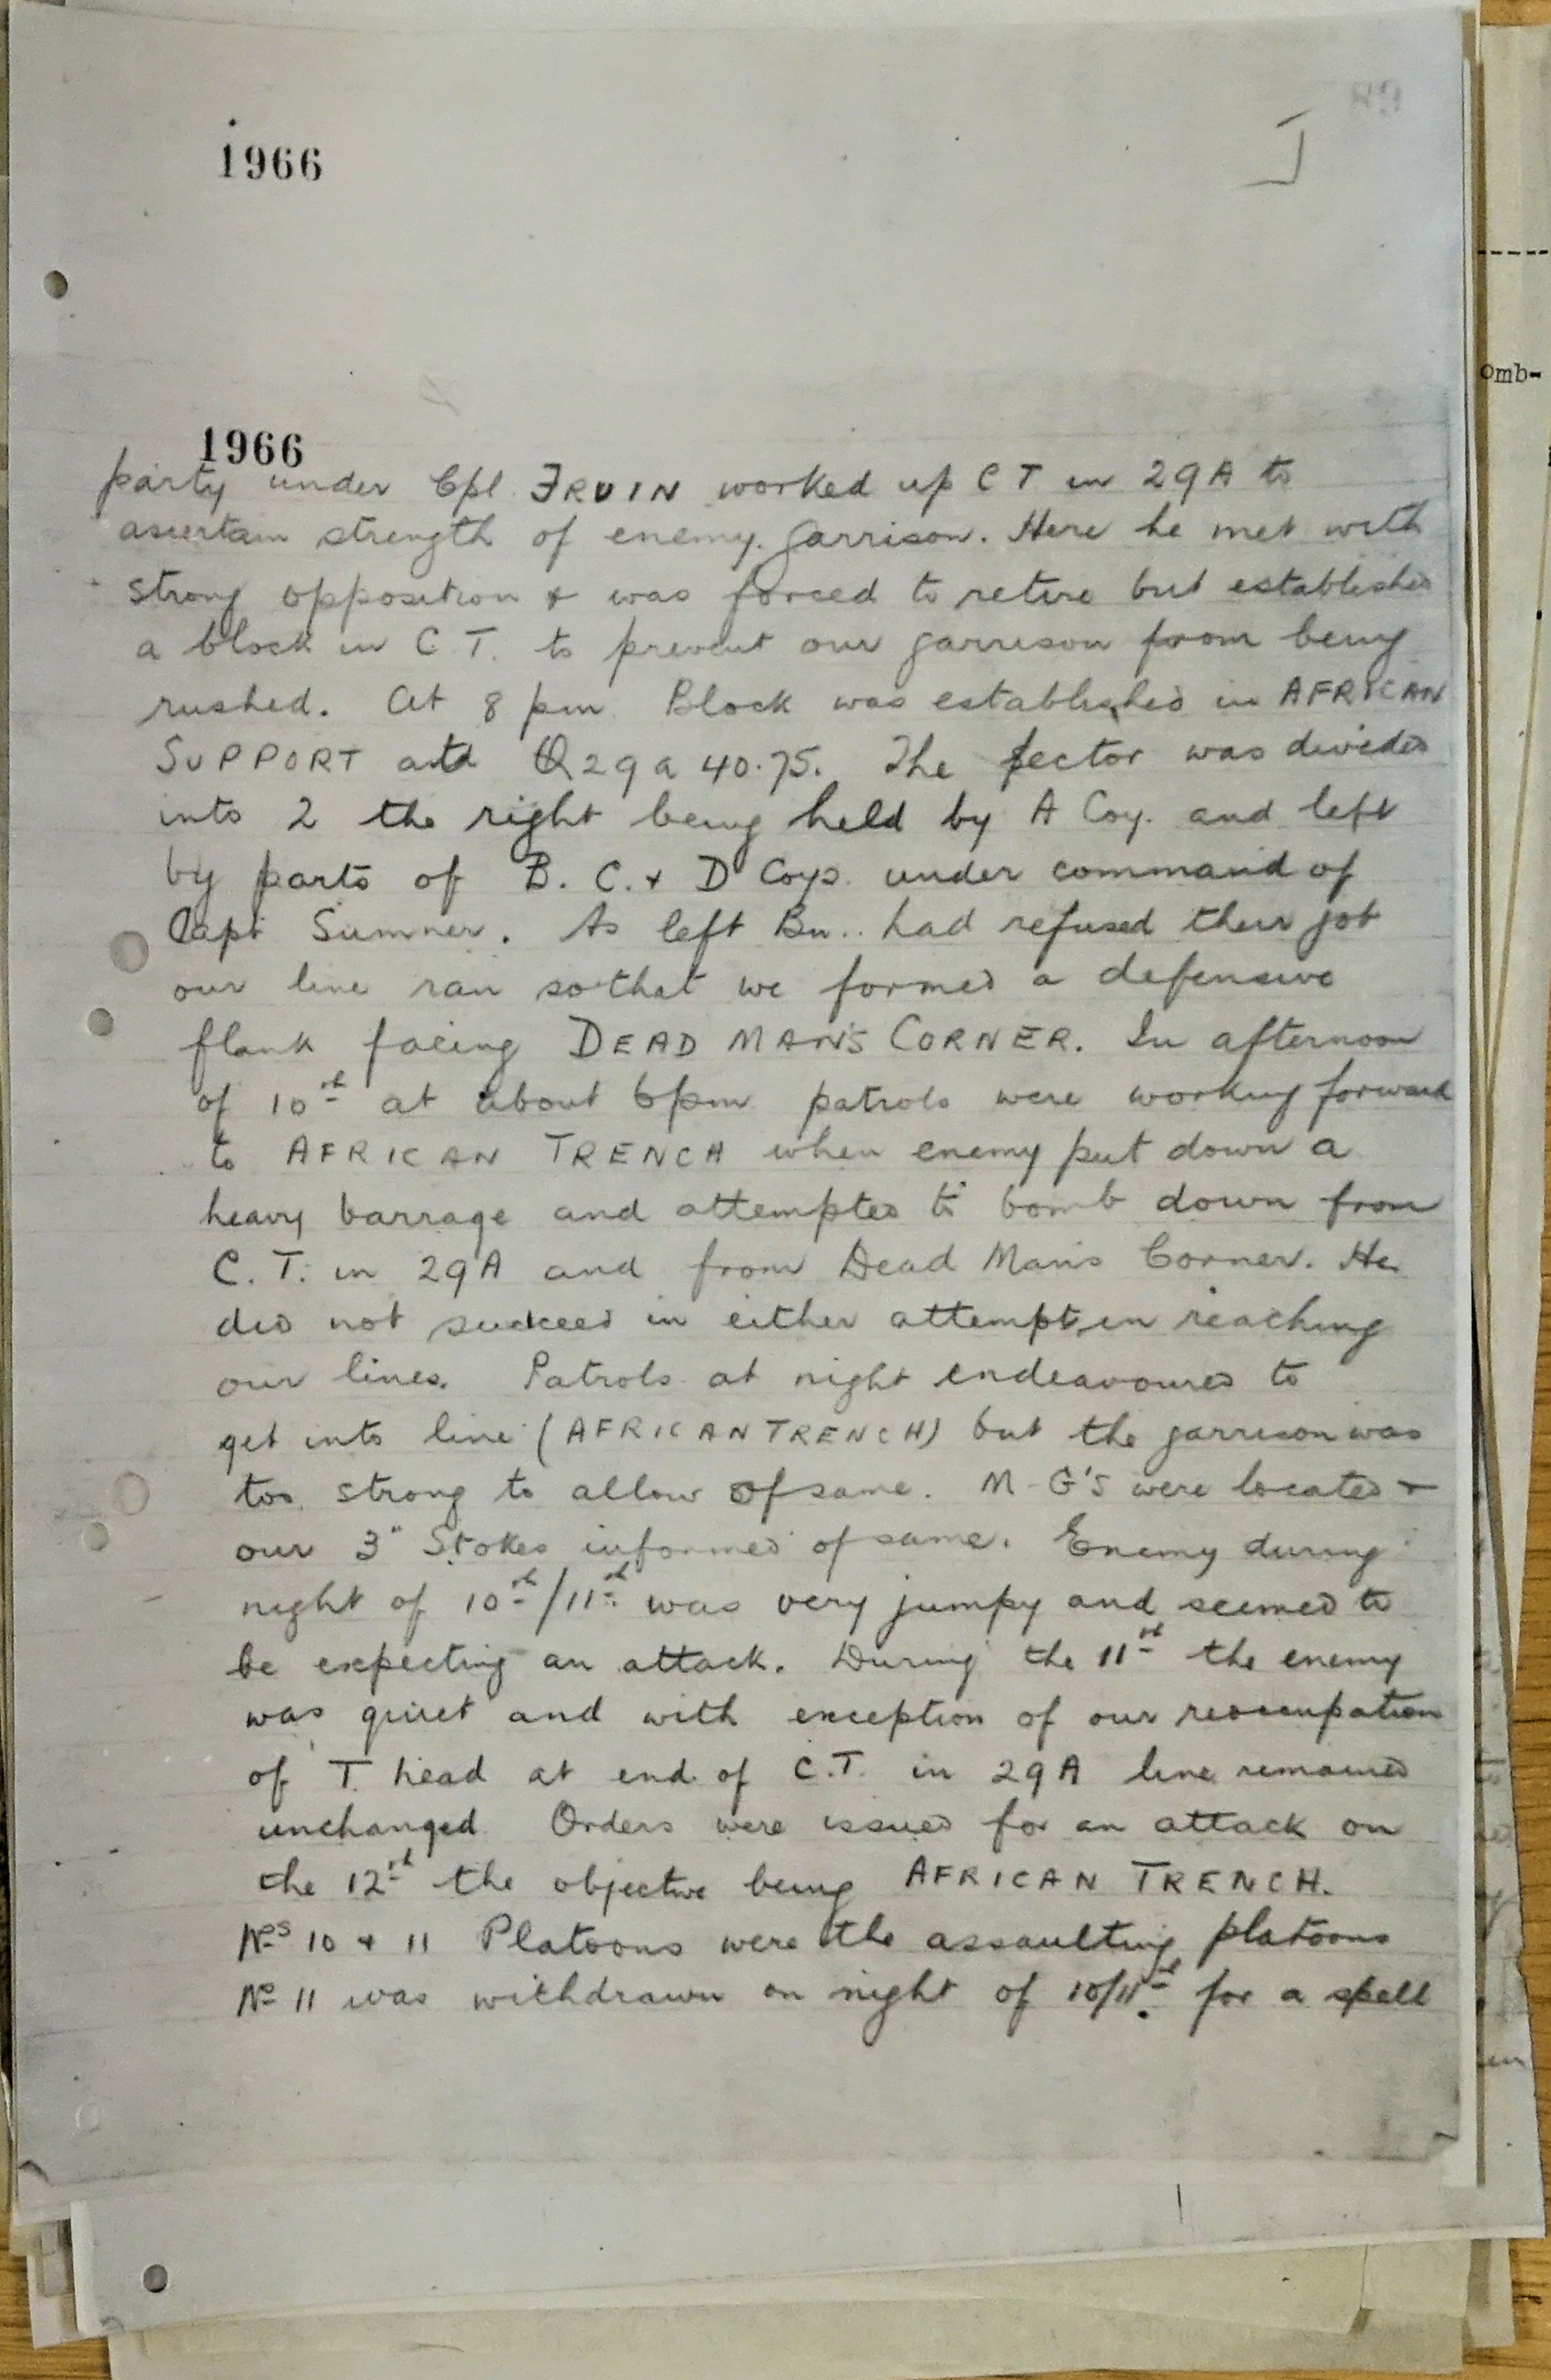 1966
1966
party under Cpl. IRVIN worked up C T in 29A to
ascertain strength of enemy. garrison. Here he met with
strong opposition & was forced to retire but established
a block in C T. to prevent our garrison from being
rushed. At 8 pm Block was established in AFRICAN
SUPPORT at Q29a 40.75. The sector was divided
into 2 the right being held by A Coy. and left
by parts of B. C. & D Coys. under command of
Capt Sumner. As left Bn.. had refused their job
our line ran so that we formed a defensive
flank facing DEAD MAN'S CORNER. In afternoon
of 10th at about 6pm patrols were working forward
to AFRICAN TRENCH when enemy put down a
heavy barrage and attempted to bomb down from
C. T. in 29A and from Dead Man's Corner. He
did not succeed in either attempt in reaching
our lines. Patrols at night endeavoured to
get into line (AFRICAN TRENCH) but the garrison was
too strong to allow of same. M-G'S were located &
our 3" Stokes informed of same. Enemy during
night of 10th/11th was very jumpy and seemed to
be expecting an attack. During the 11th the enemy
was quiet and with exception of our reoccupation
of T. head at end of C.T. in 29A line remained
unchanged Orders were issued for an attack on
the 12th the objective being AFRICAN TRENCH.
Nos 10 & 11 Platoons were the assaulting platoons
No 11 was withdrawn on night of 10/11th for a spell
omb-